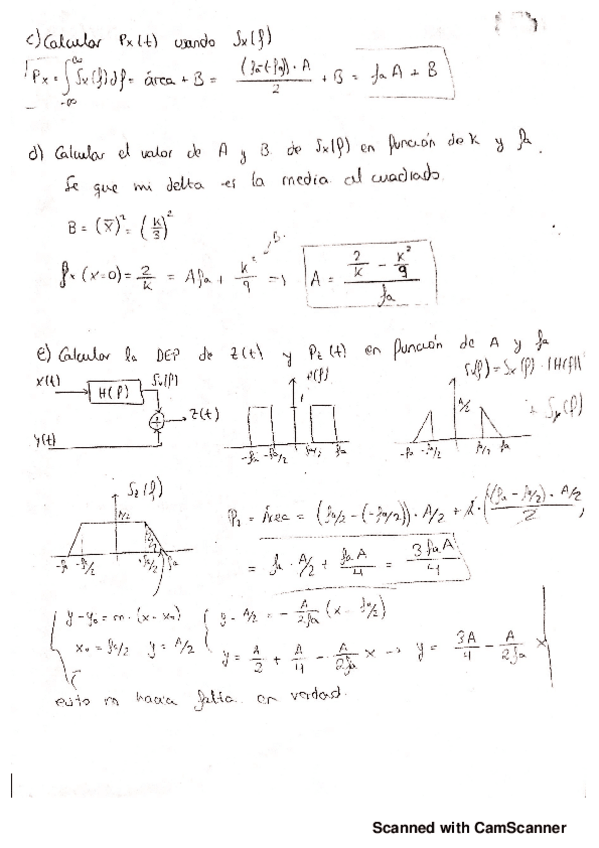 c) Calcular Px(t) usando Sx(f)
Px = ∫_{-∞}^{∞} Sx(f) df = área + B = (fa-(-fa))·A / 2 + B = fa A + B
d) Calcular el valor de A y B de Sx(f) en función de K y fa.
Se que mi delta es la media al cuadrado.
B = (x̄)² = (K/3)²
B.
fx(x=0) = 2/K = A fa + K²/9 → A = (2/K - K²/9) / fa
e) Calcular la DEP de Z(t) y Pz(t) en función de A y fa
x(t) H(f) Sv(f) Z(t) y(t)
H(f) 1 -fa -fa/2 fa/2 fa
Sv(f) = Sx(f) · |H(f)|
A/2 -fa -fa/2 fa/2 fa
Sz(f)
A/2 -fa -fa/2 fa/2 fa
Pz = Área = (fa/2 - (-fa/2)) · A/2 + 2 · ((fa - fa/2) · A/2 / 2)
= fa · A/2 + fa A / 4 = 3 fa A / 4
y - y₀ = m · (x - x₀) y - A/2 = - A/2fa (x - fa/2)
x₀ = fa/2 y = A/2 y = A/2 + A/4 - A/2fa x → y = 3A/4 - A/2fa x
esto no hacia falta en verdad.
Scanned with CamScanner